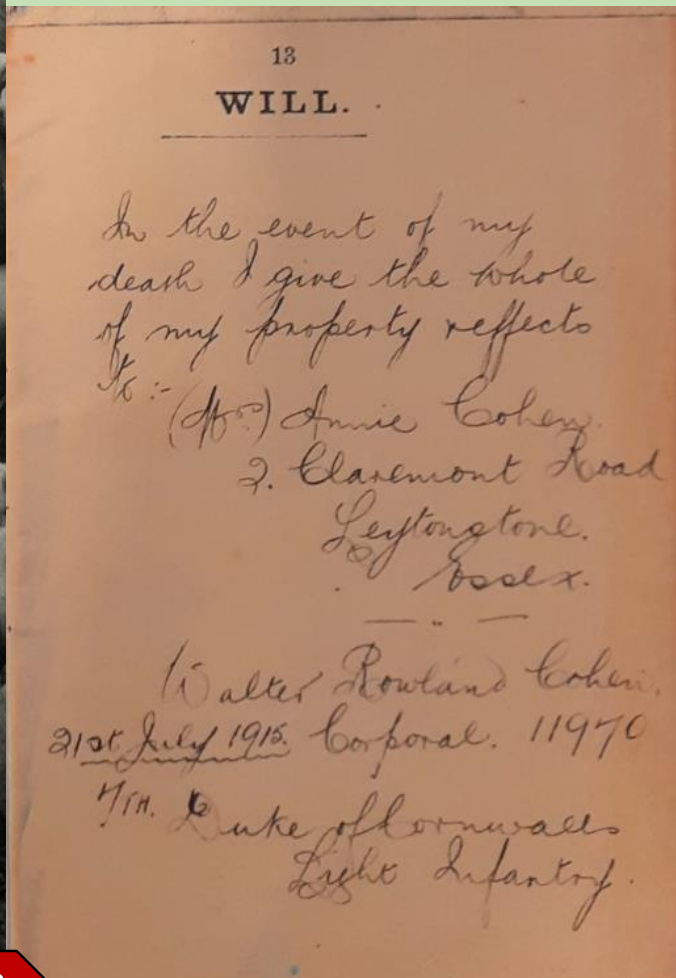 13
WILL.
In the event of my
death I give the whole
of my property & effects
to :-
(Mrs.) Annie Cohen.
2. Claremont Road
Leytonstone.
Essex.
Walter Rowland Cohen.
21st July 1915. Corporal. 11970
7TH. Duke of Cornwalls
Light Infantry.